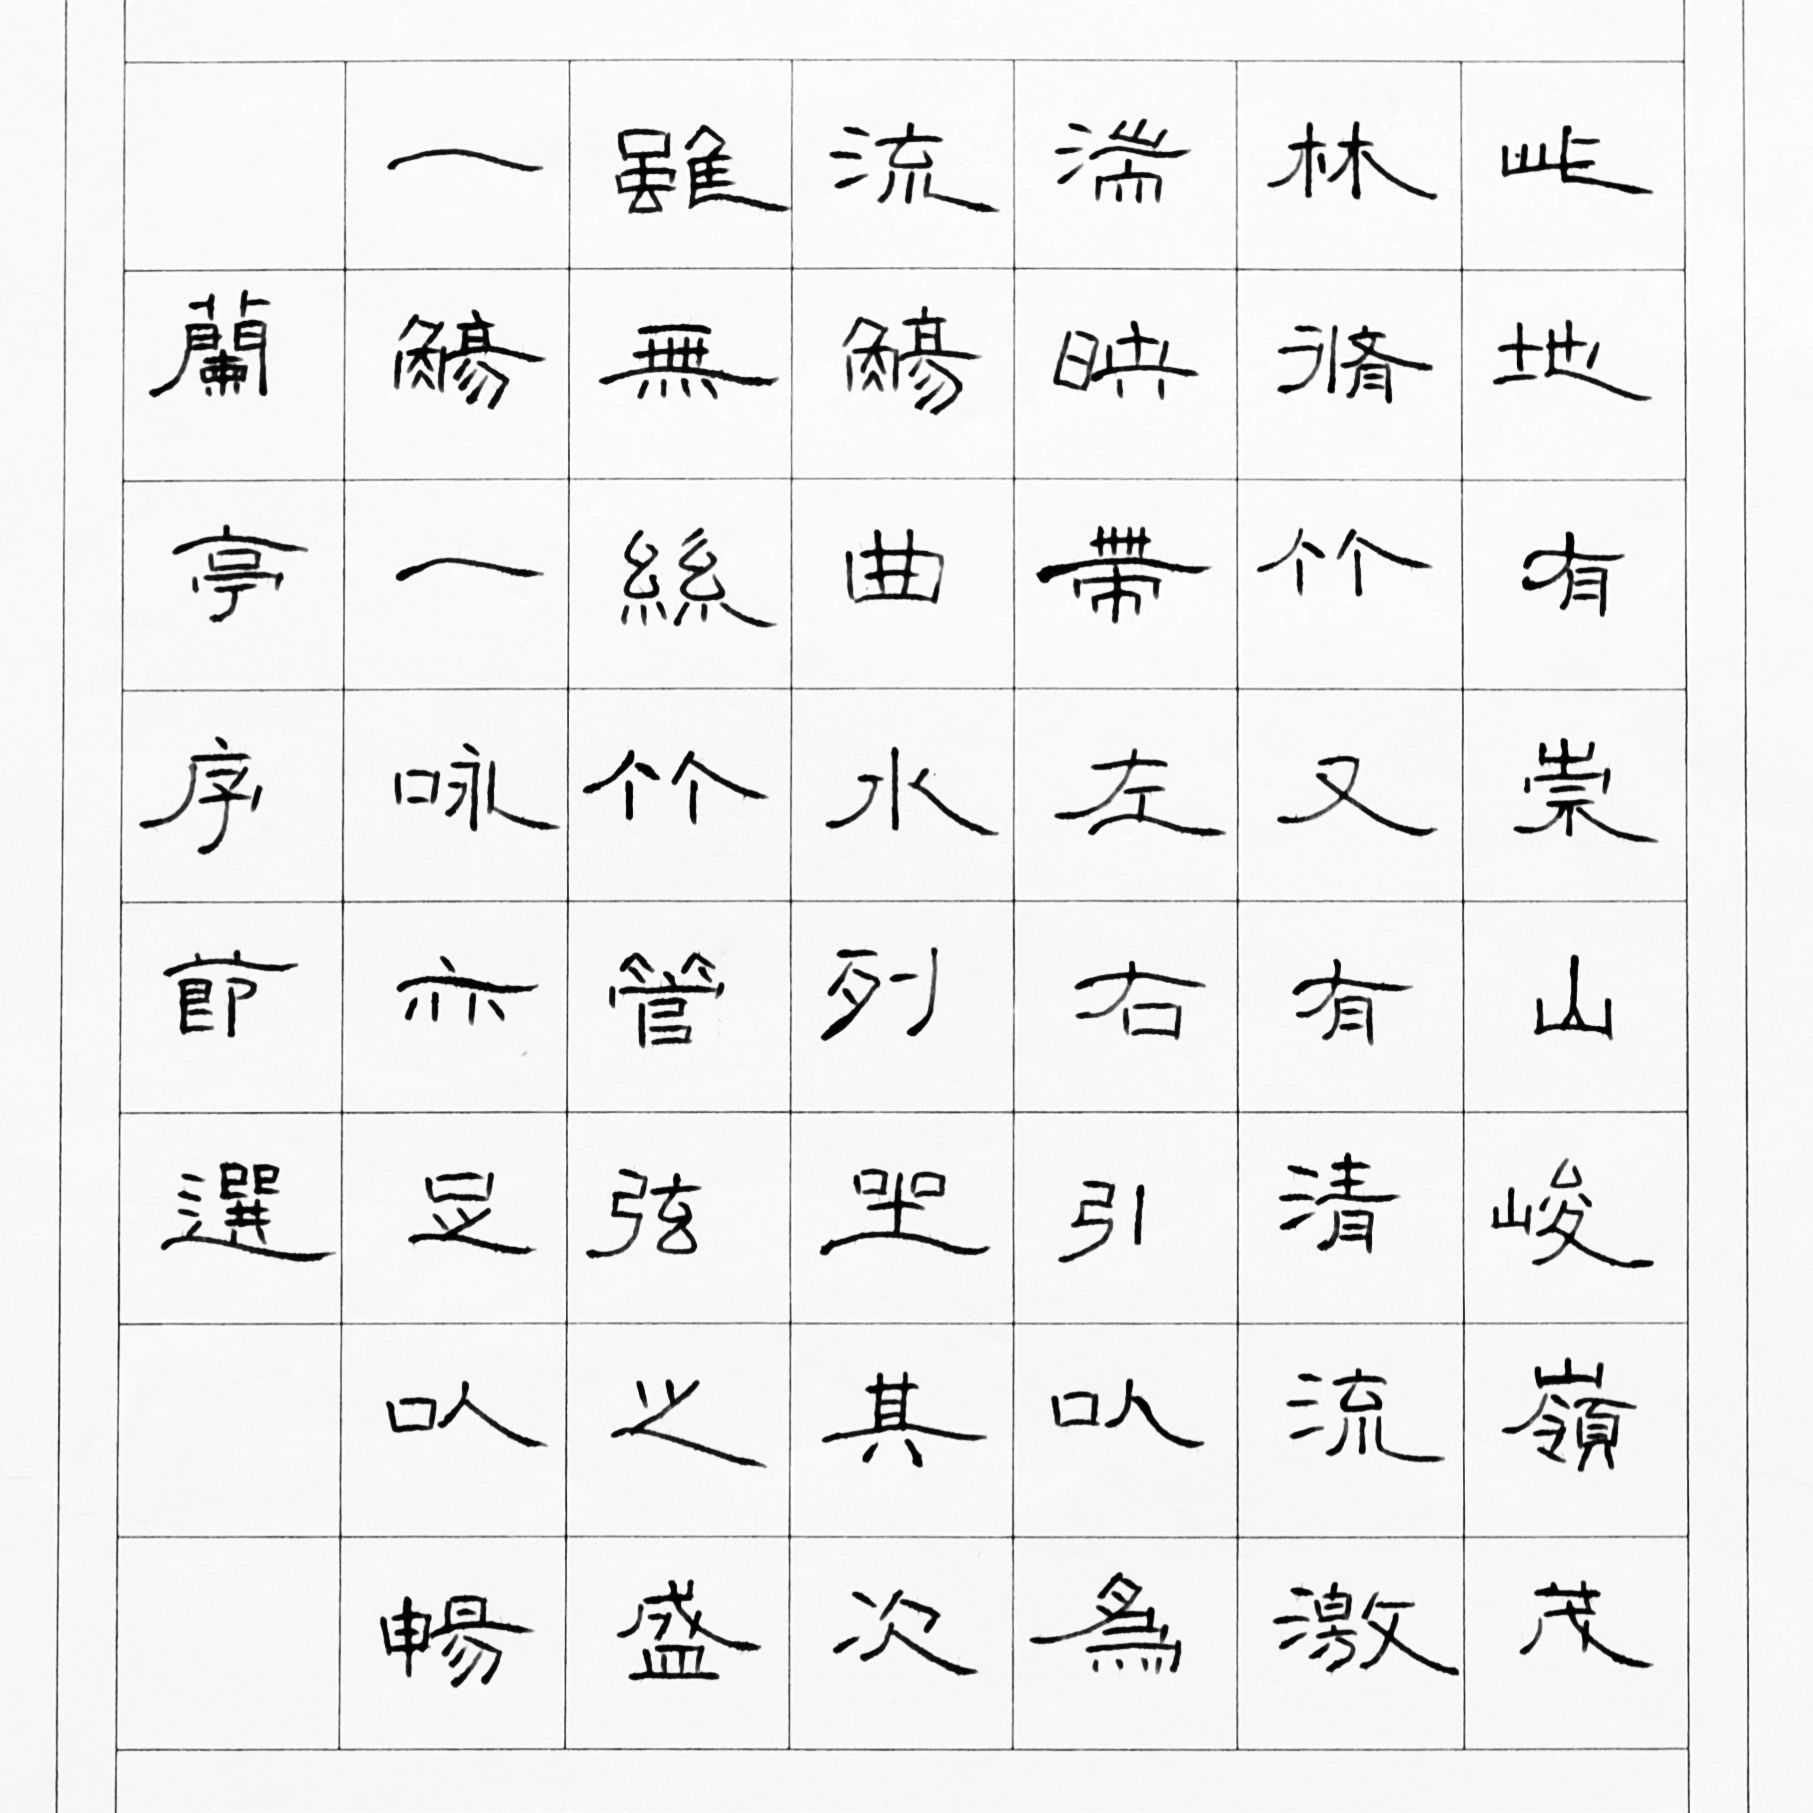 此地有崇山峻嶺茂
林脩竹又有清流激
湍映帶左右引以為
流觴曲水列坐其次
雖無絲竹管弦之盛
一觴一咏亦足以暢
蘭亭序節選